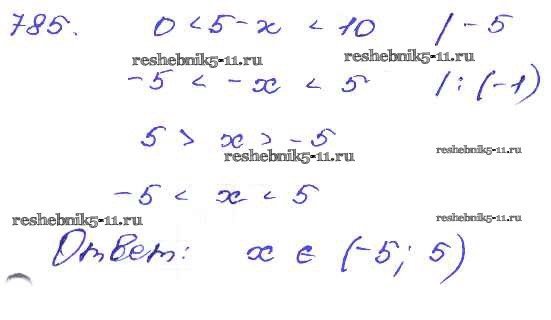 785. 0 < 5 - x < 10 / - 5
reshebnik5-11.ru reshebnik5-11.ru
-5 < -x < 5 / : (-1)
5 > x > -5
reshebnik5-11.ru reshebnik5-11.ru
-5 < x < 5
reshebnik5-11.ru reshebnik5-11.ru
Ответ: x ∈ (-5; 5)